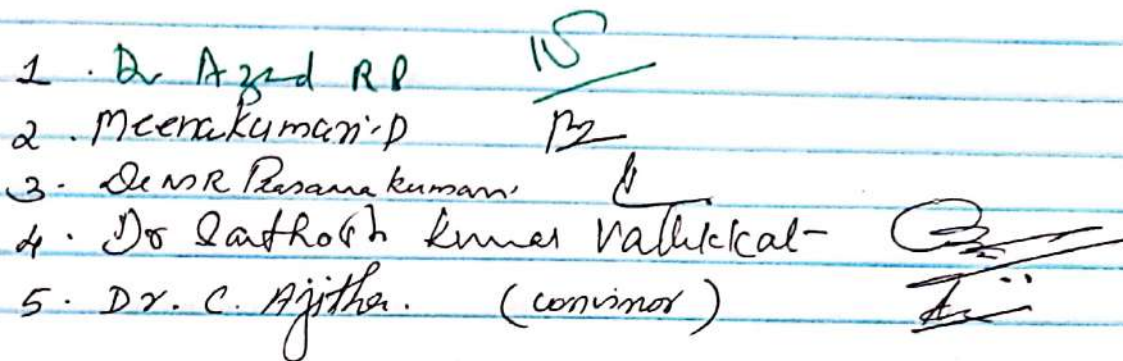 1 . Dr Azad RP
2 . Meenakumari.P
3 . Dr MR Prasanakumari.
4 . Dr Santhosh kumar Vallikkal-
5 . Dr. C. Ajitha. (convinor)